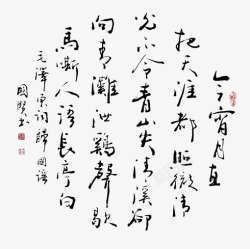 今宵月直
把天涯都照彻清
光不令青山失清溪却
向青滩泄鸡声歇
马嘶人语长亭白
毛泽东词归国谣
国贤书